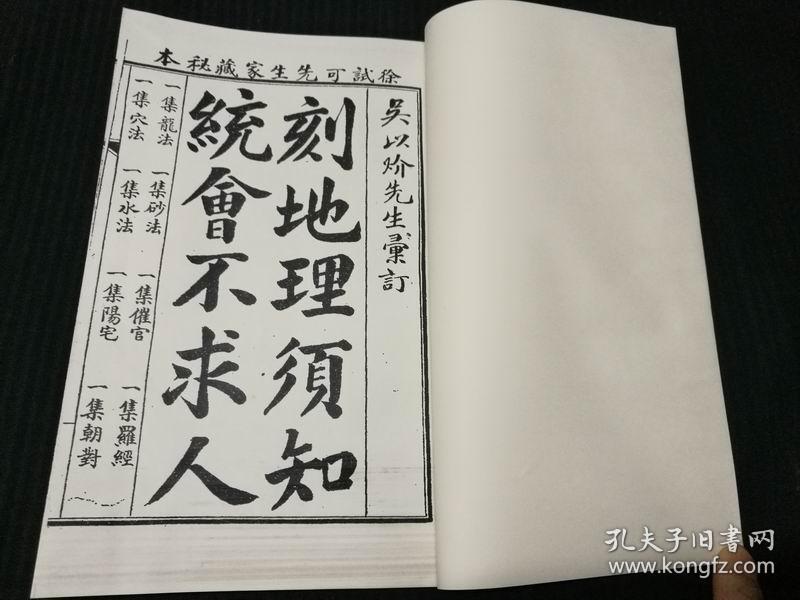 徐試可先生家藏秘本
吳以炌先生彙訂
刻地理須知
統會不求人
一集龍法
一集砂法
一集催官
一集羅經
一集穴法
一集水法
一集陽宅
一集朝對
孔夫子旧书网
www.kongfz.com